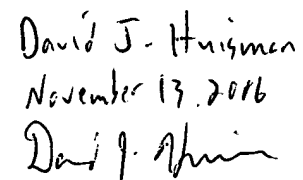 David J. Huisman
November 13, 2016
David J. Huisman